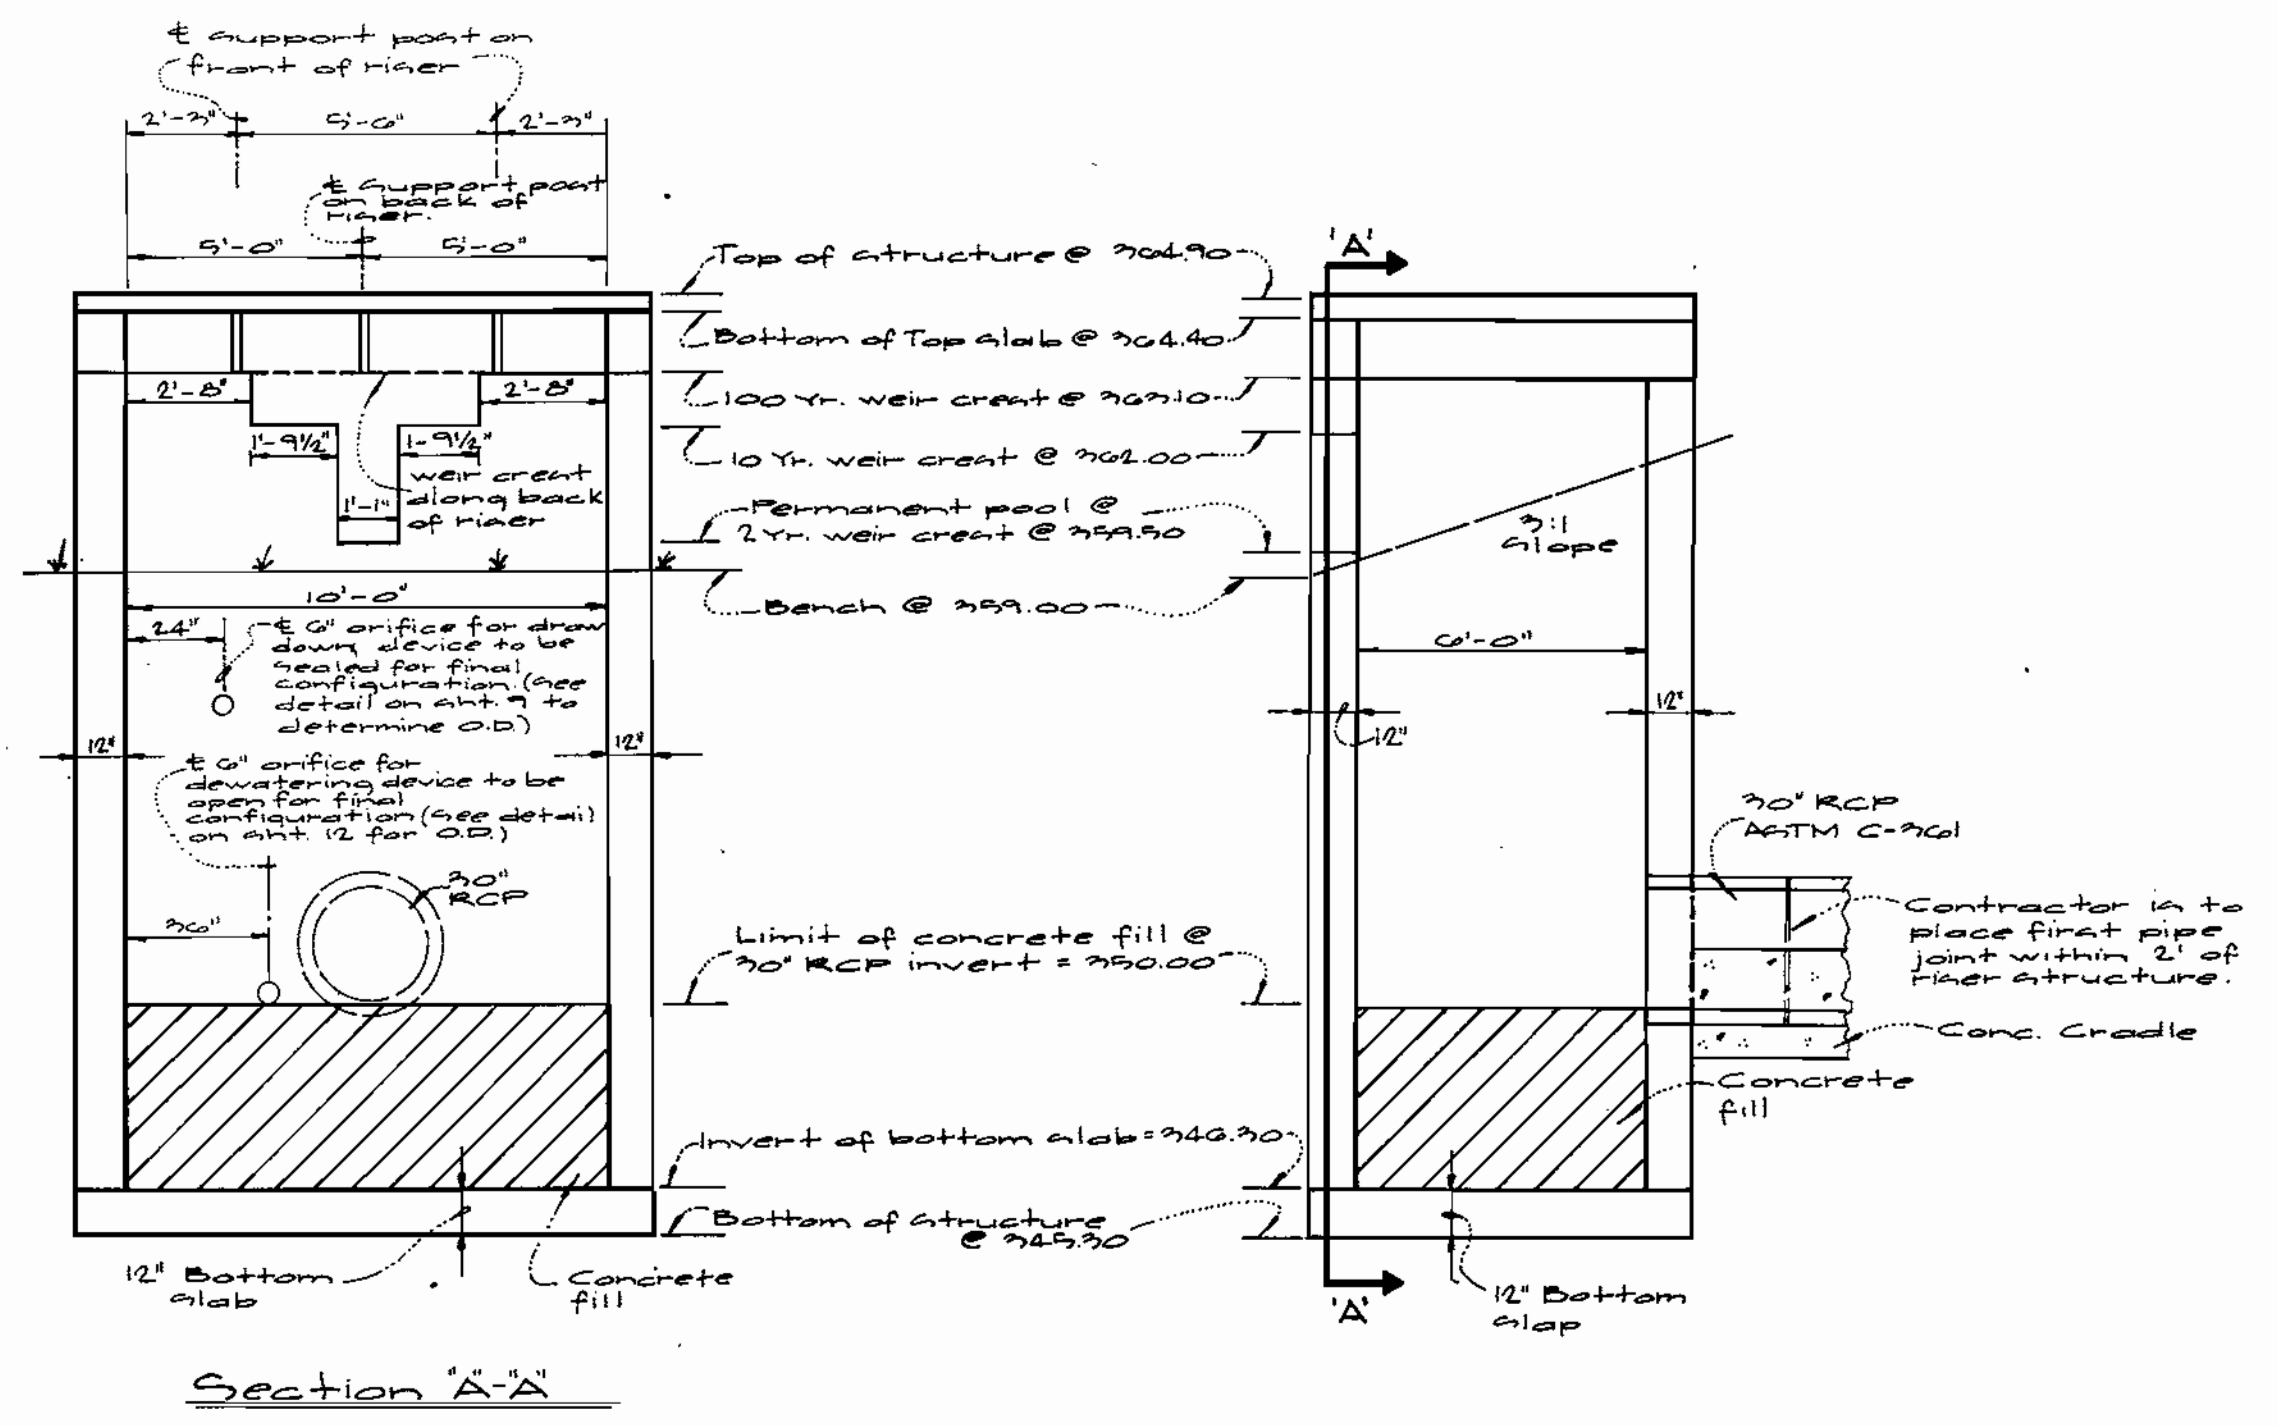 ℄ Support post on
front of riser
2'-3"
5'-6"
2'-3"
℄ Support post
on back of
riser.
5'-0"
5'-0"
2'-8"
2'-8"
1'-9½"
1-9½"
weir crest
along back
of riser
1'-1"
10'-0"
24"
℄ 6" orifice for draw
down device to be
sealed for final
configuration. (See
detail on sht. 9 to
determine O.D.)
12"
12"
℄ 6" orifice for
dewatering device to be
open for final
configuration (See detail
on sht. 12 for O.D.)
36"
30"
RCP
12" Bottom
slab
Concrete
fill
Section "A"-"A"
Top of structure @ 364.90
Bottom of Top slab @ 364.40
100 Yr. weir crest @ 363.10
10 Yr. weir crest @ 362.00
Permanent pool @
2 Yr. weir crest @ 359.50
Bench @ 359.00
Limit of concrete fill @
30" RCP invert = 350.00
Invert of bottom slab = 346.30
Bottom of structure
@ 345.30
'A'
3:1
slope
6'-0"
12"
12"
30" RCP
ASTM C-361
Contractor is to
place first pipe
joint within 2' of
riser structure.
Conc. Cradle
Concrete
fill
12" Bottom
slap
'A'